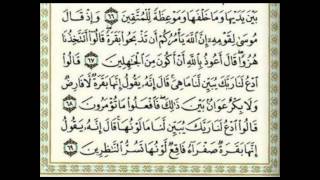 بَيْنَ يَدَيْهَا وَمَا خَلْفَهَا وَمَوْعِظَةً لِّلْمُتَّقِينَ ٦٦ وَإِذْ قَالَ
مُوسَىٰ لِقَوْمِهِ إِنَّ اللَّهَ يَأْمُرُكُمْ أَن تَذْبَحُوا بَقَرَةً قَالُوا أَتَتَّخِذُنَا
هُزُوًا قَالَ أَعُوذُ بِاللَّهِ أَنْ أَكُونَ مِنَ الْجَاهِلِينَ ٦٧ قَالُوا
ادْعُ لَنَا رَبَّكَ يُبَيِّن لَّنَا مَا هِيَ قَالَ إِنَّهُ يَقُولُ إِنَّهَا بَقَرَةٌ لَّا فَارِضٌ
وَلَا بِكْرٌ عَوَانٌ بَيْنَ ذَٰلِكَ فَافْعَلُوا مَا تُؤْمَرُونَ ٦٨
قَالُوا ادْعُ لَنَا رَبَّكَ يُبَيِّن لَّنَا مَا لَوْنُهَا قَالَ إِنَّهُ يَقُولُ
إِنَّهَا بَقَرَةٌ صَفْرَاءُ فَاقِعٌ لَّوْنُهَا تَسُرُّ النَّاظِرِينَ ٦٩